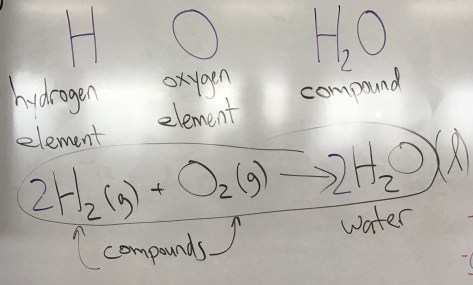 H O H₂O
hydrogen element
oxygen element
compound
2H₂(g) + O₂(g) → 2H₂O(l)
compounds
water